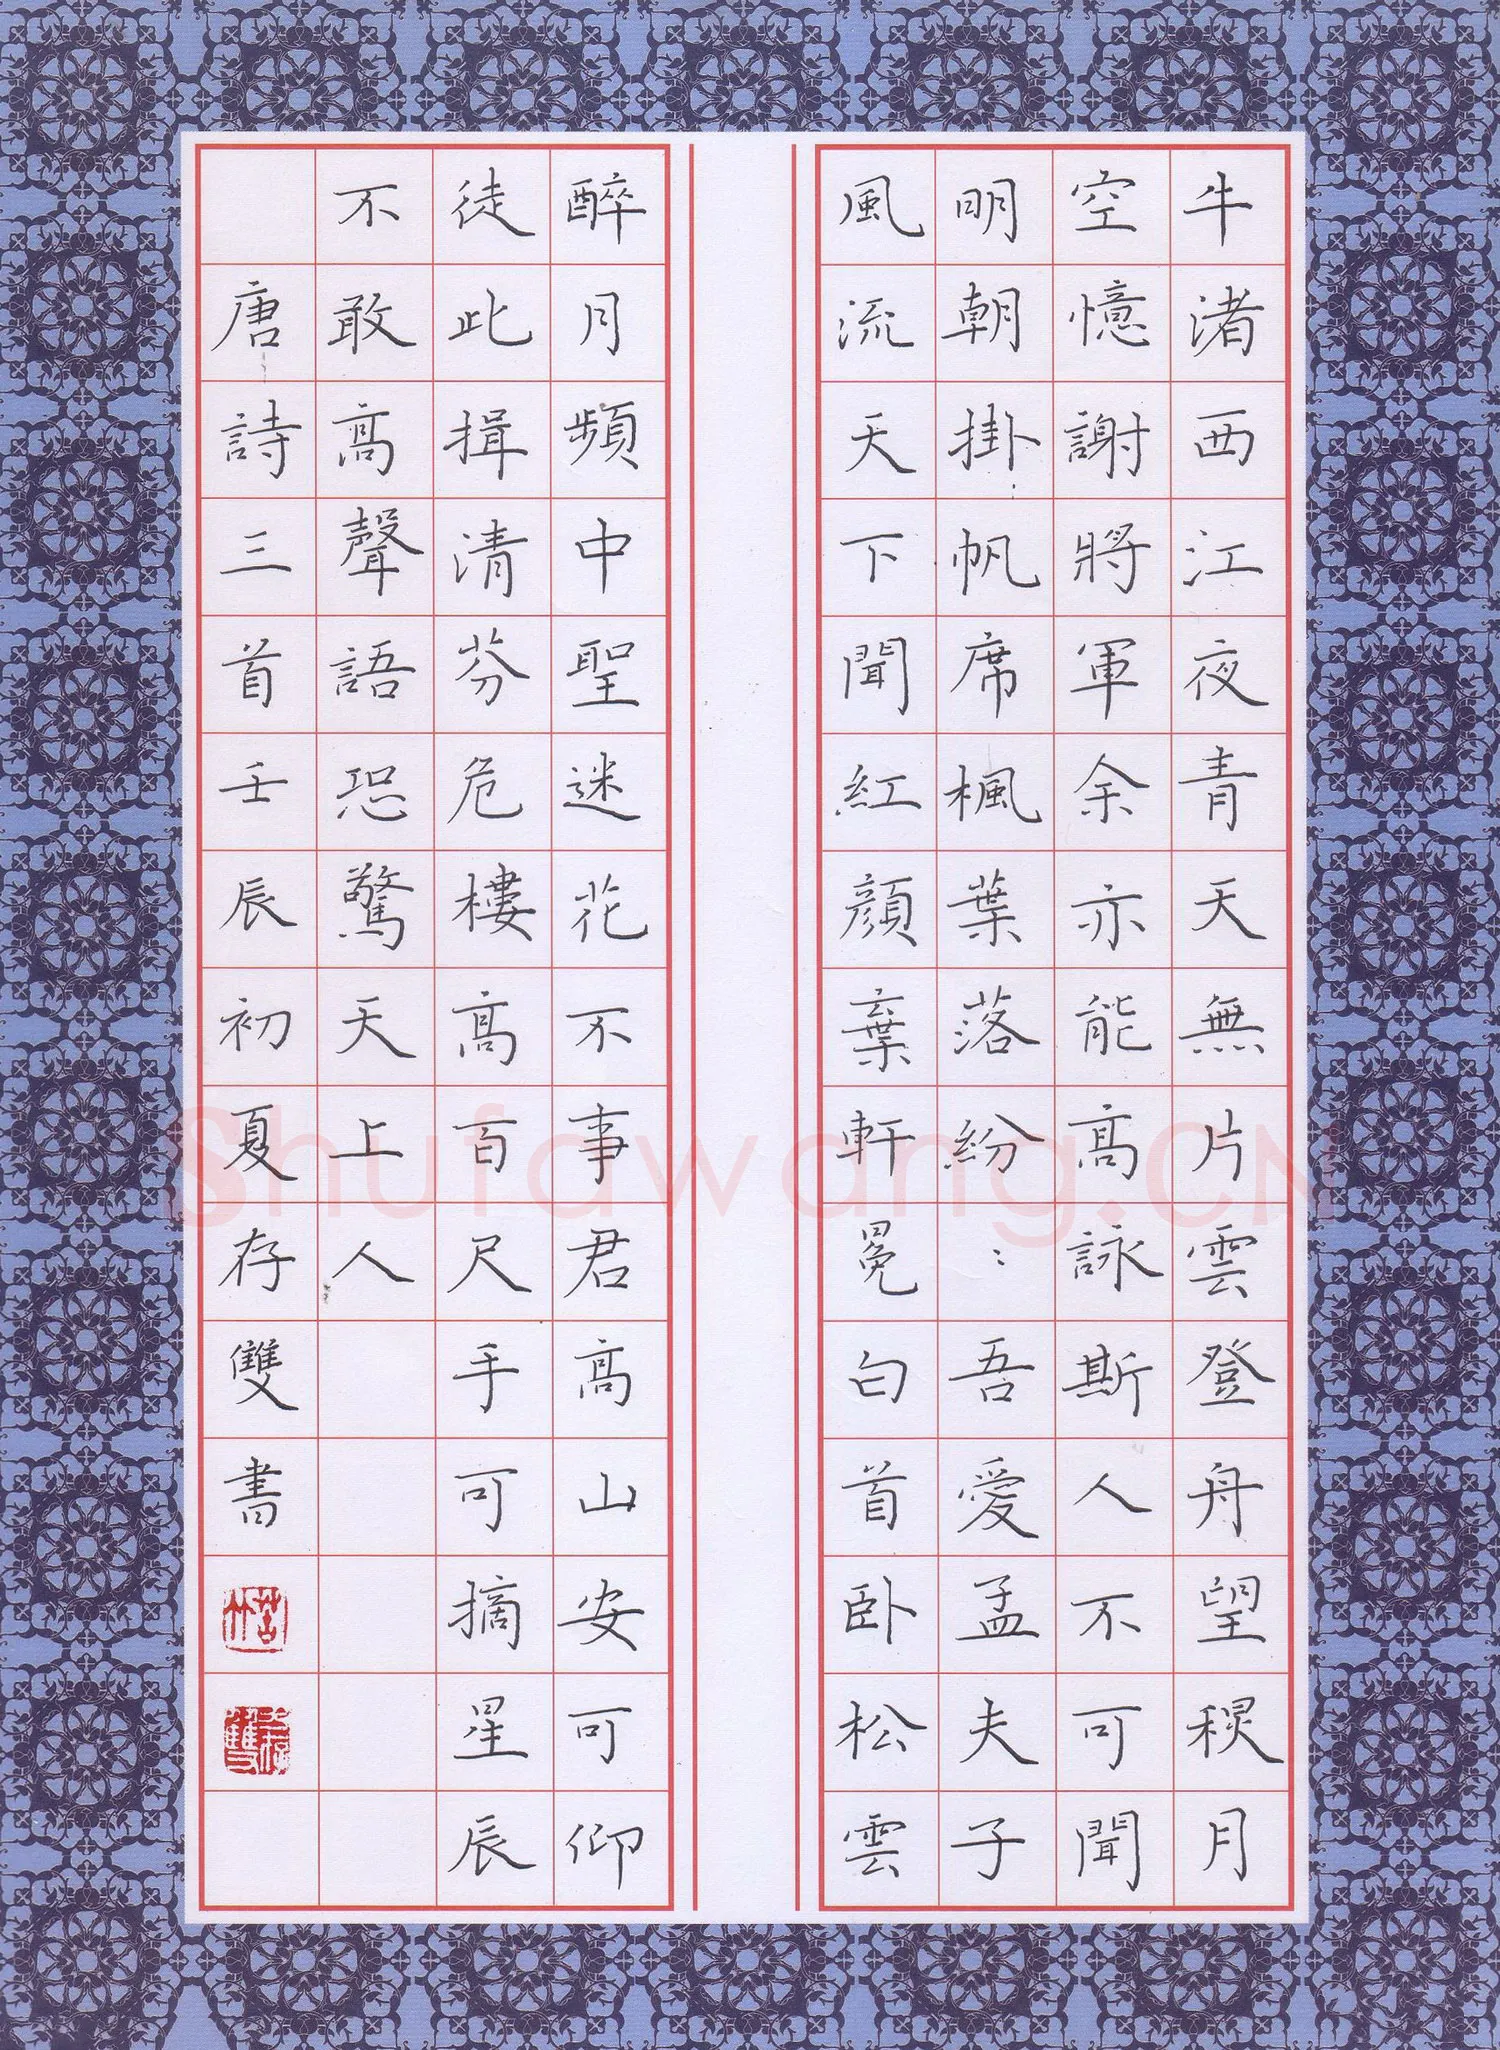 牛渚西江夜青天無片雲登舟望秋月
空憶謝將軍余亦能高詠斯人不可聞
明朝掛帆席楓葉落紛：吾愛孟夫子
風流天下聞紅顏棄軒冕白首臥松雲
醉月頻中聖迷花不事君高山安可仰
徒此揖清芬危樓高百尺手可摘星辰
不敢高聲語恐驚天上人
唐詩三首壬辰初夏存雙書
Shufawang.CN